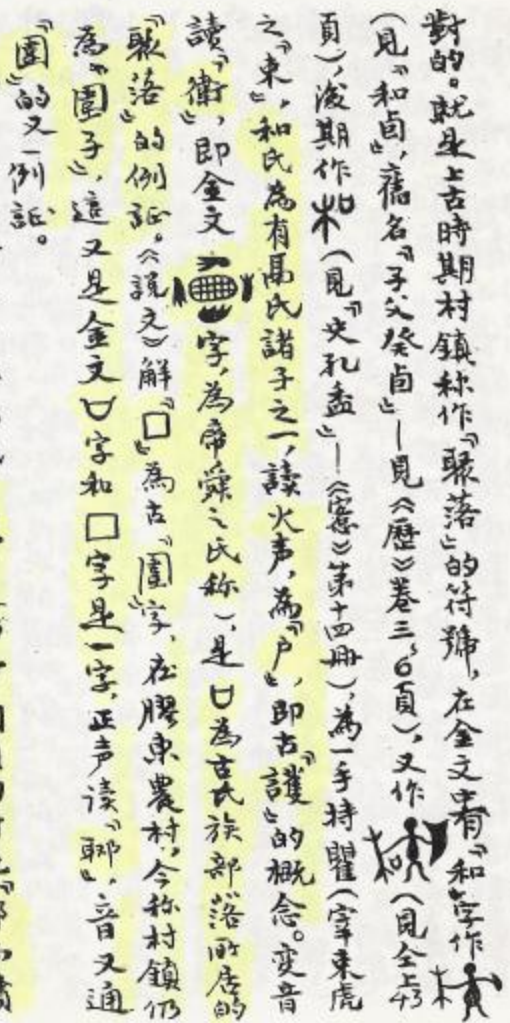 對的。就是上古時期村鎮称作『聚落』的符號，在金文中有『和』字作
（見『和卣』，舊名『子父癸卣』—見《歷》卷三，6頁），又作（見仝上43
頁），後期作（見『史孔盉』—《愙》第十四册），為一手持瞿（宰東虎
之『東』，和氏為有鬲氏諸子之一，讀火声，為『戶』，即古『護』的概念。变音
讀『衛』，即金文字，為帝舜之氏称），是凵為古氏族部落所居的
『聚落』的例証。《說文》解『囗』為古『圍』字，在膠東農村，今称村鎮仍
為『圍子』，這又是金文凵字和囗字是一字，正声读『耶』，音又通
『圍』的又一例証。